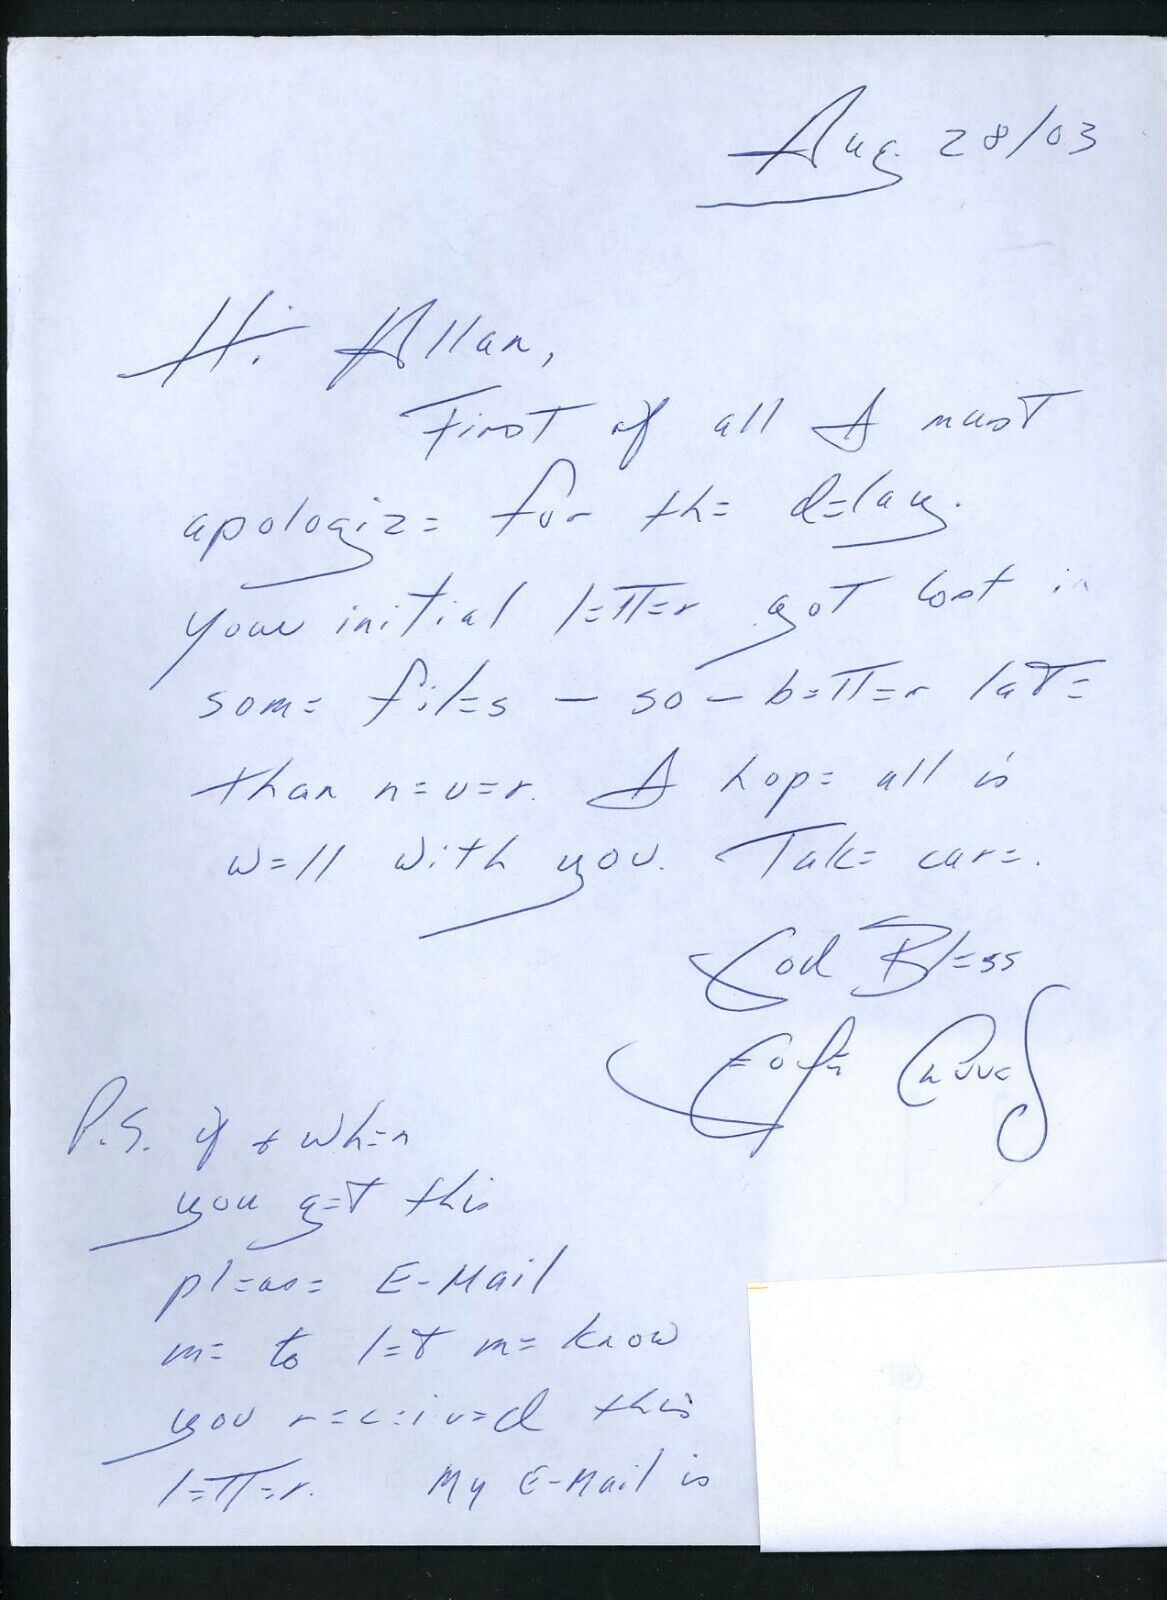 Aug. 28/03
Hi Allan,
First of all I must
apologize for the delay.
Your initial letter got lost in
some files – so – better late
than never. I hope all is
well with you. Take care.
God Bless
P.S. if & when
you get this
please E-Mail
me to let me know
you received this
letter. My E-Mail is